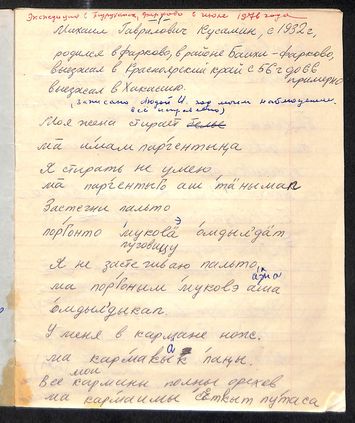 Экспедиция в Туруханск, Фарково в июле 1976 года
Михаил Гаврилович Кусамин, с 1932 г,
родился в Фарково, в районе Баихи-Фарково,
выезжал в Красноярский край с 56 г до 66
примерно
выезжал в Хакасию.
(записано Людой И. под моим наблюдением.
всё исправлено)
Моя жена стирает белье
ма̄ имам парг'ентыңа
Я стирать не умею
ма̄ парг'ентыго аш та̄нымап
Застегни пальто
порг'онто муковӓ э омдылдӓт
пуговицу
Я не застегиваю пальто
ма порг'оним муковэ аша
омдылдыкап.
У меня в кармане нож.
ма кармакык паңы.
мои
Все карманы полны орехов
ма кармаимы